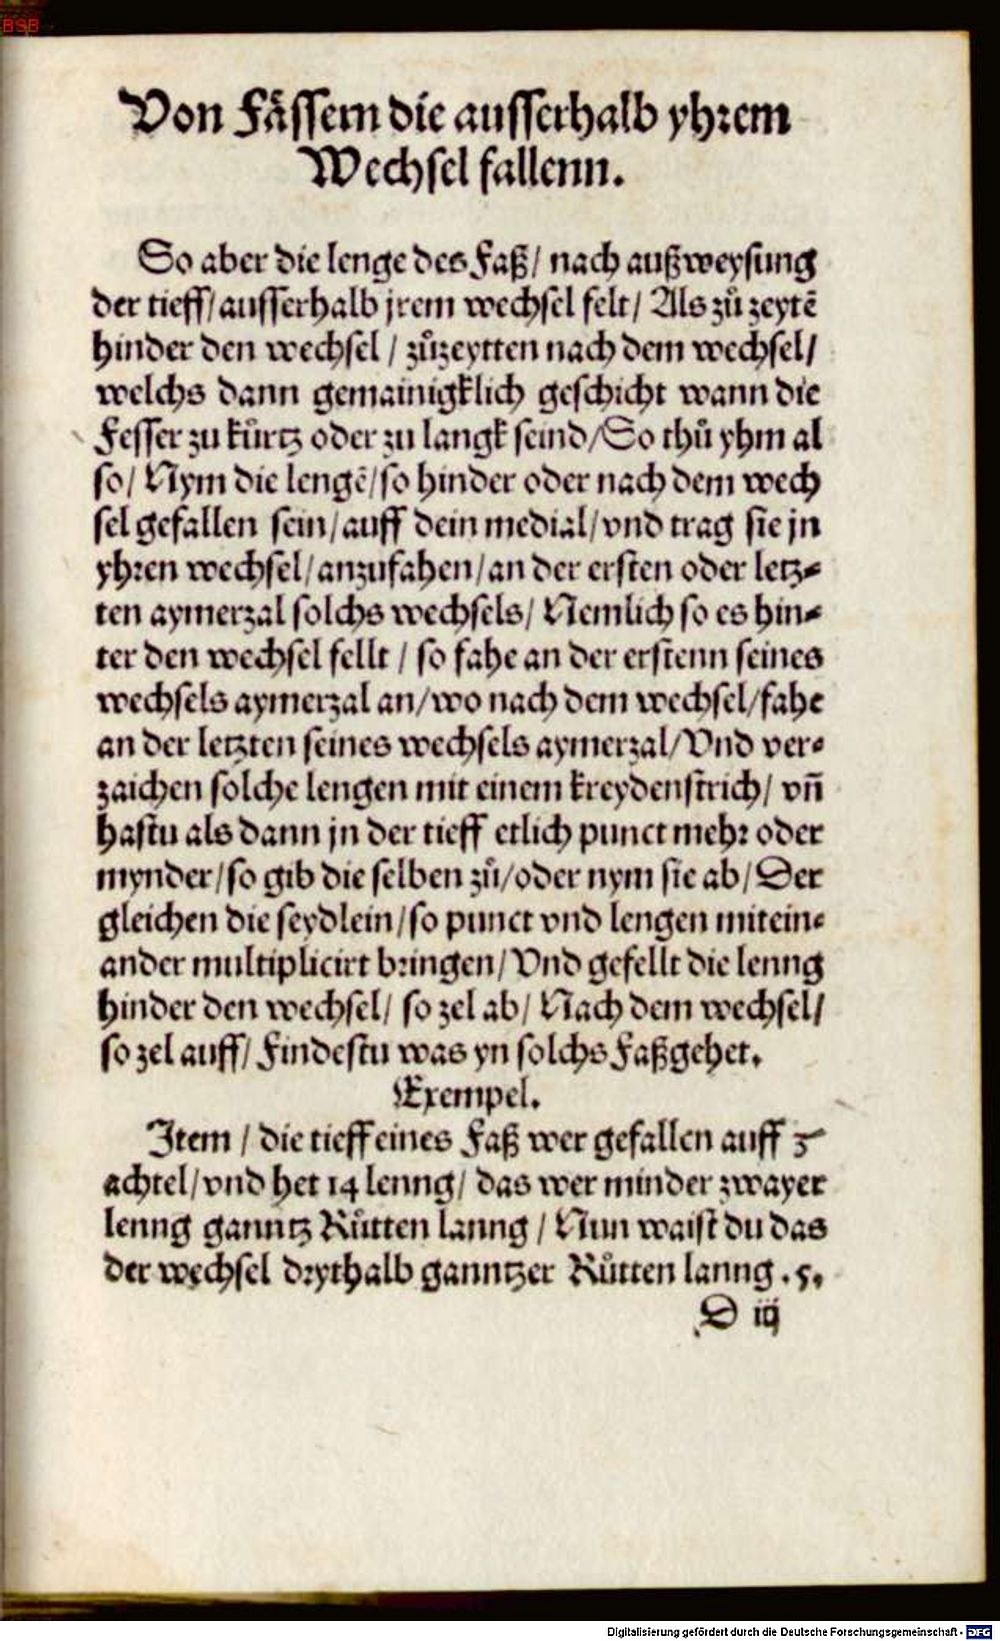 BSB
Von Fässern die ausserhalb yhrem
Wechsel fallenn.
So aber die lenge des Faß/ nach außweysung
der tieff/ ausserhalb jrem wechsel felt/ Als zů zeytē
hinder den wechsel / zůzeytten nach dem wechsel/
welchs dann gemainigklich geschicht wann die
Fesser zu kůrtz oder zu langk seind/ So thů yhm al
so/ Nym die lengē/ so hinder oder nach dem wech
sel gefallen sein/ auff dein medial/ vnd trag sie jn
yhren wechsel/ anzufahen/ an der ersten oder letz-
ten aymerzal solchs wechsels/ Nemlich so es hin-
ter den wechsel fellt / so fahe an der erstenn seines
wechsels aymerzal an/ wo nach dem wechsel/ fahe
an der letzten seines wechsels aymerzal/ Vnd ver-
zaichen solche lengen mit einem kreydenstrich/ vñ
hastu als dann jn der tieff etlich punct mehr oder
mynder/ so gib die selben zů/ oder nym sie ab/ Der
gleichen die seydlein/ so punct vnd lengen mitein-
ander multiplicirt bringen/ Vnd gefellt die lenng
hinder den wechsel/ so zel ab/ Nach dem wechsel/
so zel auff/ Findestu was yn solchs Faß gehet.
Exempel.
Item / die tieff eines Faß wer gefallen auff 3
achtel/ vnd het 14 lenng/ das wer minder zwayer
lenng ganntz Růtten lanng / Nun waist du das
der wechsel drythalb ganntzer Růtten lanng . 5.
D iij
Digitalisierung gefördert durch die Deutsche Forschungsgemeinschaft - DFG